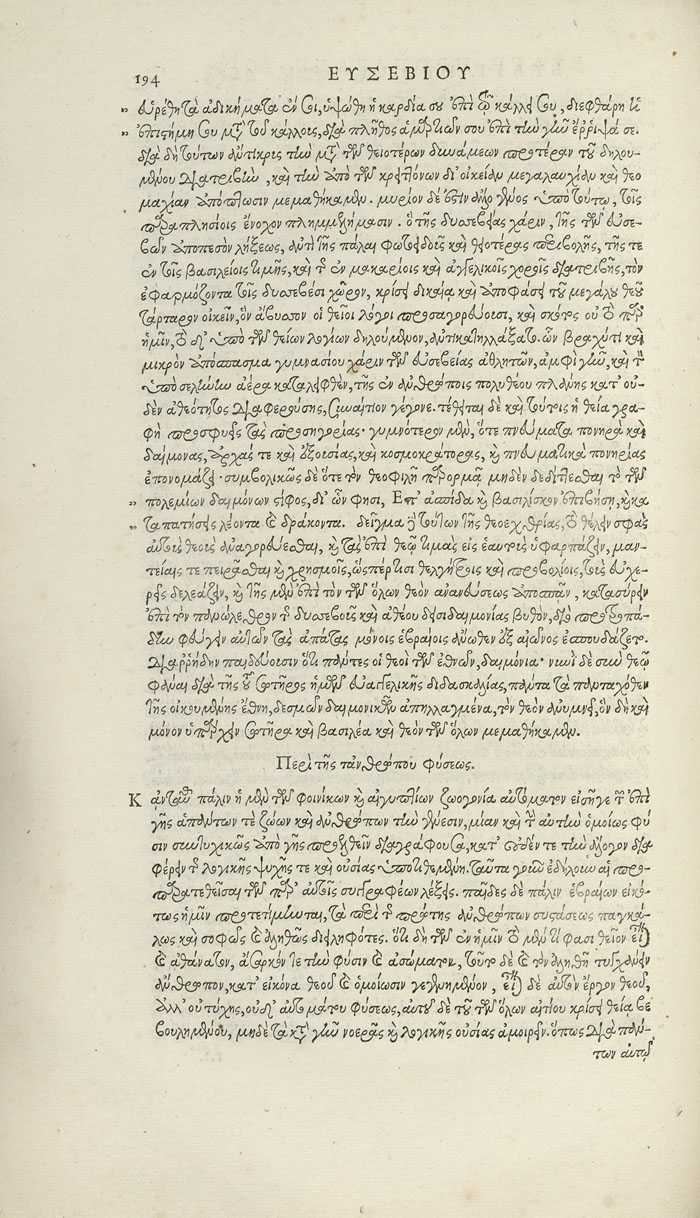 194 ΕΥΣΕΒΙΟΥ
εὑρέθη τὰ ἀδικήματα ἐν σοι, ὑψώθη ἡ καρδία σου ἐπὶ τῷ κάλλει σου, διεφθάρη ἡ
ἐπιστήμη σου μετὰ τοῦ κάλλους, διὰ πλῆθος ἁμαρτιῶν σου ἐπὶ τὴν γῆν ἔρριψά σε.
διὰ δὴ τούτων ἄντικρις τὴν μετὰ τῶν θειοτέρων δυνάμεων προτέραν τοῦ δηλου-
μένου διατριβὴν, καὶ τὴν ἀπὸ τῶν κρειττόνων δι' οἰκείαν μεγαλαυχίαν καὶ θεο
μαχίαν ἀπόπτωσιν μεμαθήκαμεν. μυρίον δέ ἐστιν ἄλλο γένος ὑπὸ τούτῳ, τοῖς
παραπλησίοις ἔνοχον πλημμελήμασιν. ὃ τῆς δυσσεβείας χάριν, τῆς τῶν εὐσε-
βῶν ἀποπεσὸν λήξεως, ἀντὶ τῆς πάλαι φωτοειδοῦς καὶ θειοτέρας περιβολῆς, τῆς τε
ἐν τοῖς βασιλείοις τιμῆς, καὶ τῆς ἐν μακαρίοις καὶ ἀγγελικοῖς χοροῖς διατριβῆς, τὸν
ἐφαρμόζοντα τοῖς δυσσεβέσι χῶρον, κρίσει δικαίᾳ καὶ ἀποφάσει τοῦ μεγάλου θεοῦ
τάρταρον οἰκεῖν, ὃν ἄβυσσον οἱ θεῖοι λόγοι προσαγορεύουσι, καὶ σκότος οὐ τὸ παρ'
ἡμῖν, τὸ δ' ὑπὸ τῶν θείων λογίων δηλούμενον, ἀντικατηλλάξατο. ὧν βραχύ τι καὶ
μικρὸν ἀπόσπασμα γυμνασίου χάριν τῶν εὐσεβείας ἀθλητῶν, ἀμφὶ γῆν, καὶ τὸν
ὑπὸ σελήνην ἀέρα καταλειφθὲν, τῆς ἐν ἀνθρώποις πολυθέου πλάνης κατ' οὐ-
δὲν ἀθεότητος διαφερούσης, συναίτιον γέγονε. τέθειται δὲ καὶ τούτοις ἡ θεία γρα-
φὴ προσφυεῖς τὰς προσηγορίας· γυμνότερον μὲν, ὅτε πνεύματα πονηρὰ καὶ
δαίμονας, ἀρχάς τε καὶ ἐξουσίας, καὶ κοσμοκράτορας, καὶ πνευματικὰ πονηρίας
ἐπονομάζει· συμβολικῶς δὲ ὅτε τὸν θεοφιλῆ παρορμᾷ μηδὲν δεδιττεσθαι τὸ τῶν
πολεμίων δαιμόνων στίφος, δι' ὧν φησι, Ἐπ' ἀσπίδα καὶ βασιλίσκον ἐπιβήσῃ, καὶ κα
ταπατήσεις λέοντα καὶ δράκοντα. δεῖγμα δὲ τούτων τῆς θεοεχθρίας, τὸ θέλειν σφᾶς
αὐτοὺς θεοὺς ἀναγορεύεσθαι, καὶ τὰς ἐπὶ θεῷ τιμὰς εἰς ἑαυτοὺς ὑφαρπάζειν, μαν-
τείαις τε πειρᾶσθαι καὶ χρησμοῖς, ὥσπερ τισι θελγήτροις καὶ προβολίοις, τοὺς εὐχε-
ρεῖς δελεάζειν, καὶ τῆς μὲν ἐπὶ τὸν τῶν ὅλων θεὸν ἀνανεύσεως ἀποσπᾶν, κατασύρειν
ἐπὶ τὸν πανώλεθρον τῆς δυσσεβοῦς καὶ ἀθέου δεισιδαιμονίας βυθὸν, διὸ πρὸ τοῦ πά-
λαι φεύγειν αὐτῶν τὰς ἀπάτας μόνοις ἑβραίοις ἄνωθεν ἐξ αἰῶνος ἐσπουδάζετο.
διαρρήδην παιδεύουσιν ὅτι πάντες οἱ θεοὶ τῶν ἐθνῶν, δαιμόνια· νυνὶ δὲ σὺν θεῷ
φάναι διὰ τῆς τοῦ σωτῆρος ἡμῶν εὐαγγελικῆς διδασκαλίας, πάντα τὰ πανταχόθεν
τῆς οἰκουμένης ἔθνη, δεσμῶν δαιμονικῶν ἀπηλλαγμένα, τὸν θεὸν ἀνυμνεῖ, ὃν δὴ καὶ
μόνον ὑπάρχειν σωτῆρα καὶ βασιλέα καὶ θεὸν τῶν ὅλων μεμαθήκαμεν.
Περὶ τῆς τἀνθρώπου φύσεως.
Κἀνταῦθα πάλιν ἡ μὲν τῶν φοινίκων καὶ αἰγυπτίων ζωογονία αὐτόματον εἰσῆγε τὴν ἐπὶ
γῆς ἁπάντων τε ζώων καὶ ἀνθρώπων τὴν γένεσιν, μίαν καὶ τὴν αὐτὴν ὁμοίως φύ
σιν συντυχικῶς ἀπὸ γῆς προελθεῖν διαγράφουσα, κατ' οὐδέν τε τὴν ἄλογον δια
φέρειν τῆς λογικῆς ψυχῆς τε καὶ οὐσίας ὑποτιθεμένη. ταῦτα γοῦν ἐδήλουν αἱ προ-
παρατεθεῖσαι τῶν παρ' αὐτοῖς συγγραφέων λέξεις. παῖδες δὲ πάλιν ἑβραίων εἰκό-
τως ἡμῖν προτετίμηνται, τὰ περὶ τῆς πρώτης ἀνθρώπων συστάσεως παγκά-
λως καὶ σοφῶς καὶ ἀληθῶς διειληφότες. ὅτι δὴ τῶν ἐν ἡμῖν τὸ μέν τι φασὶ θεῖον εἶναι
καὶ ἀθάνατον, ἄσαρκόν τε τὴν φύσιν καὶ ἀσώματον, τοῦτο δὲ καὶ τὸν ἀληθῆ τυγχάνειν
ἄνθρωπον, κατ' εἰκόνα θεοῦ καὶ ὁμοίωσιν γεγενημένον, εἶναι δὲ αὐτὸν ἔργον θεοῦ,
ἀλλ' οὐ τύχης, οὐδ' αὐτομάτου φύσεως, αὐτοῦ δὲ τοῦ τῶν ὅλων αἰτίου κρίσει θείᾳ βε
βουλημένου, μηδὲ τὰ κατὰ γῆν νοερᾶς καὶ λογικῆς οὐσίας ἀμοιρεῖν. ὅπως διὰ πάν-
των αὐτῷ